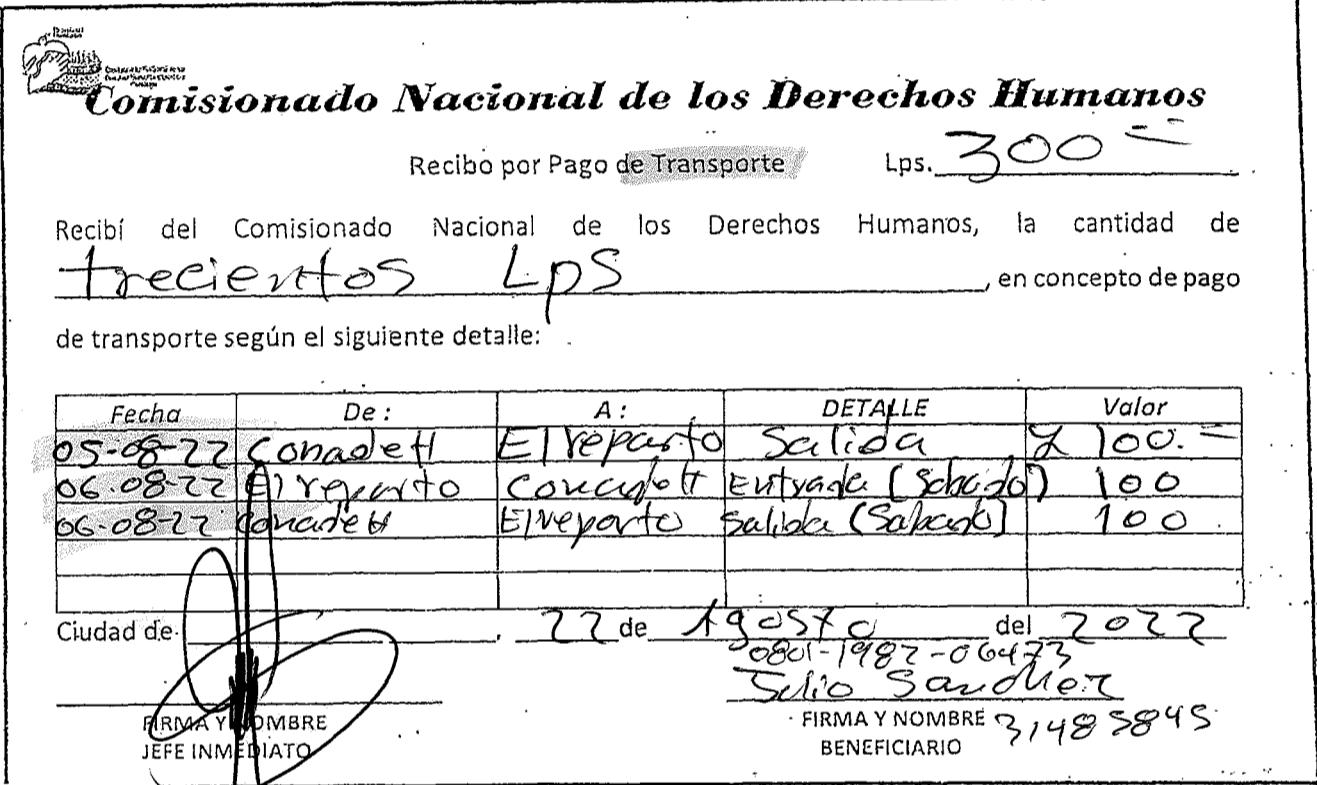 Comisionado Nacional de los Derechos Humanos
Recibo por Pago de Transporte Lps. 300
Recibí del Comisionado Nacional de los Derechos Humanos, la cantidad de
trecientos Lps, en concepto de pago
de transporte según el siguiente detalle:
Fecha De: A: DETALLE Valor
05-08-22 Conadeh El reparto Salida L 100.=
06-08-22 El reparto Conadeh Entrada (Sabado) 100
06-08-22 Conadeh El reparto Salida (Sabado) 100
Ciudad de , 22 de Agosto del 2022
0801-1982-06473
Julio Sanchez
FIRMA Y NOMBRE FIRMA Y NOMBRE 31485845
JEFE INMEDIATO BENEFICIARIO